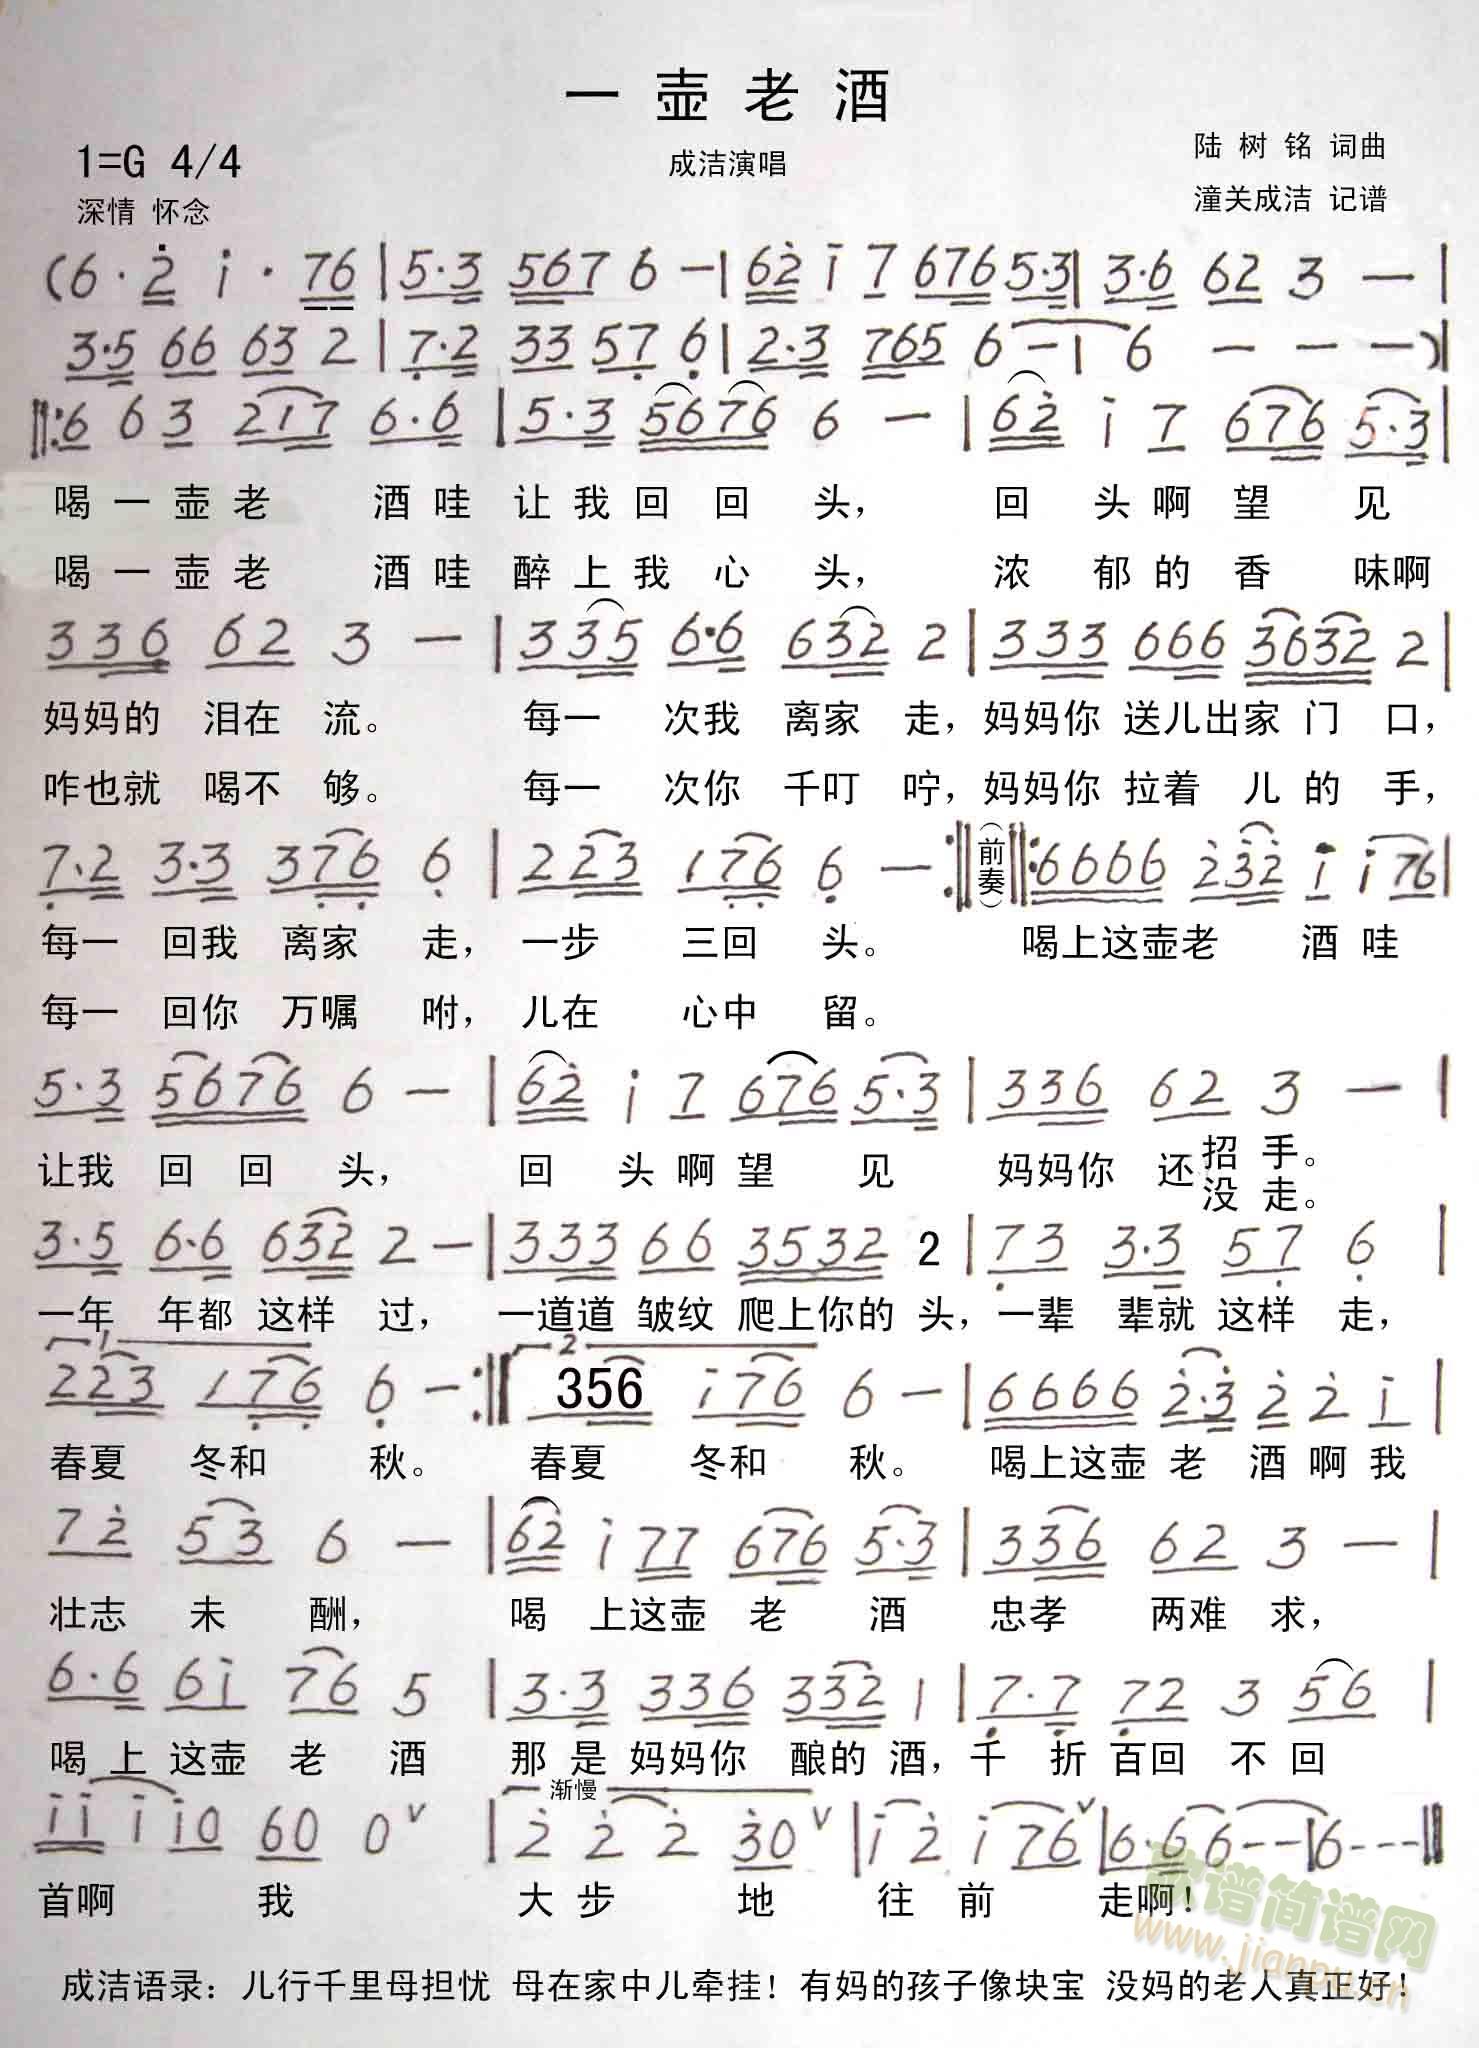 一 壶 老 酒
1=G 4/4
成洁演唱
陆 树 铭 词曲
深情 怀念
潼关成洁 记谱
(6·2̇ i·76|5·3 567 6 —|62̇ i 7 676 5·3|3·6 62 3 —|
3·5 66 63 2|7̣·2 33 57̣ 6̣|2·3 765 6 —|6 — — —)|
‖:6 6 3 217 6·6|5·3 5676 6 —|62̇ i 7 676 5·3|
喝 一 壶 老 酒 哇 让 我 回 回 头, 回 头 啊 望 见
喝 一 壶 老 酒 哇 醉 上 我 心 头, 浓 郁 的 香 味啊
336 62 3 —|335 6·6 632 2|333 666 3632 2|
妈妈的 泪在 流。 每一 次我 离家 走,妈妈你 送儿出家 门 口,
咋也就 喝不 够。 每一 次你 千叮 咛,妈妈你 拉着 儿 的 手,
7̣·2 3·3 37̣6̣ 6̣|223 17̣6̣ 6̣ —:‖(前奏)‖:6666 2̇3̇2̇ i i76|
每一 回我 离家 走, 一步 三回 头。 喝上这壶老 酒 哇
每一 回你 万嘱 咐, 儿在 心中 留。
5·3 5676 6 —|62̇ i 7 676 5·3|336 62 3 —|
让我 回 回 头, 回 头 啊 望 见 妈妈你 还招 手。
没 走。
3·5 6·6 632 2 —|333 66 3532 2|7̣3 3·3 57̣ 6̣|
一年 年都 这样 过, 一道道 皱纹 爬上你的 头,一辈 辈就 这样 走,
1 2
223 17̣6̣ 6̣ —:‖356 i76 6 —|6666 2̇·3̇ 2̇ 2̇ i|
春夏 冬和 秋。 春夏 冬和 秋。 喝上这壶 老 酒 啊 我
72̇ 53 6 —|62̇ i 77 676 5·3|336 62 3 —|
壮志 未 酬, 喝 上这壶 老 酒 忠孝 两难 求,
6·6 6i 76 5|3·3 336 332 1|7̣·7̣ 7̣2 3 56|
喝 上 这壶 老 酒 那 是 妈妈你 酿的 酒,千 折 百回 不 回
渐慢
ii i i0 60 0 ∨|2̇ 2̇ 2̇ 3̇0 ∨|i 2̇ i 76 ∨|6·6 6 - -|6 - - -‖
首啊 我 大 步 地 往 前 走啊!
歌谱简谱网
www.jianpu.cn
成洁语录:儿行千里母担忧 母在家中儿牵挂!有妈的孩子像块宝 没妈的老人真正好!